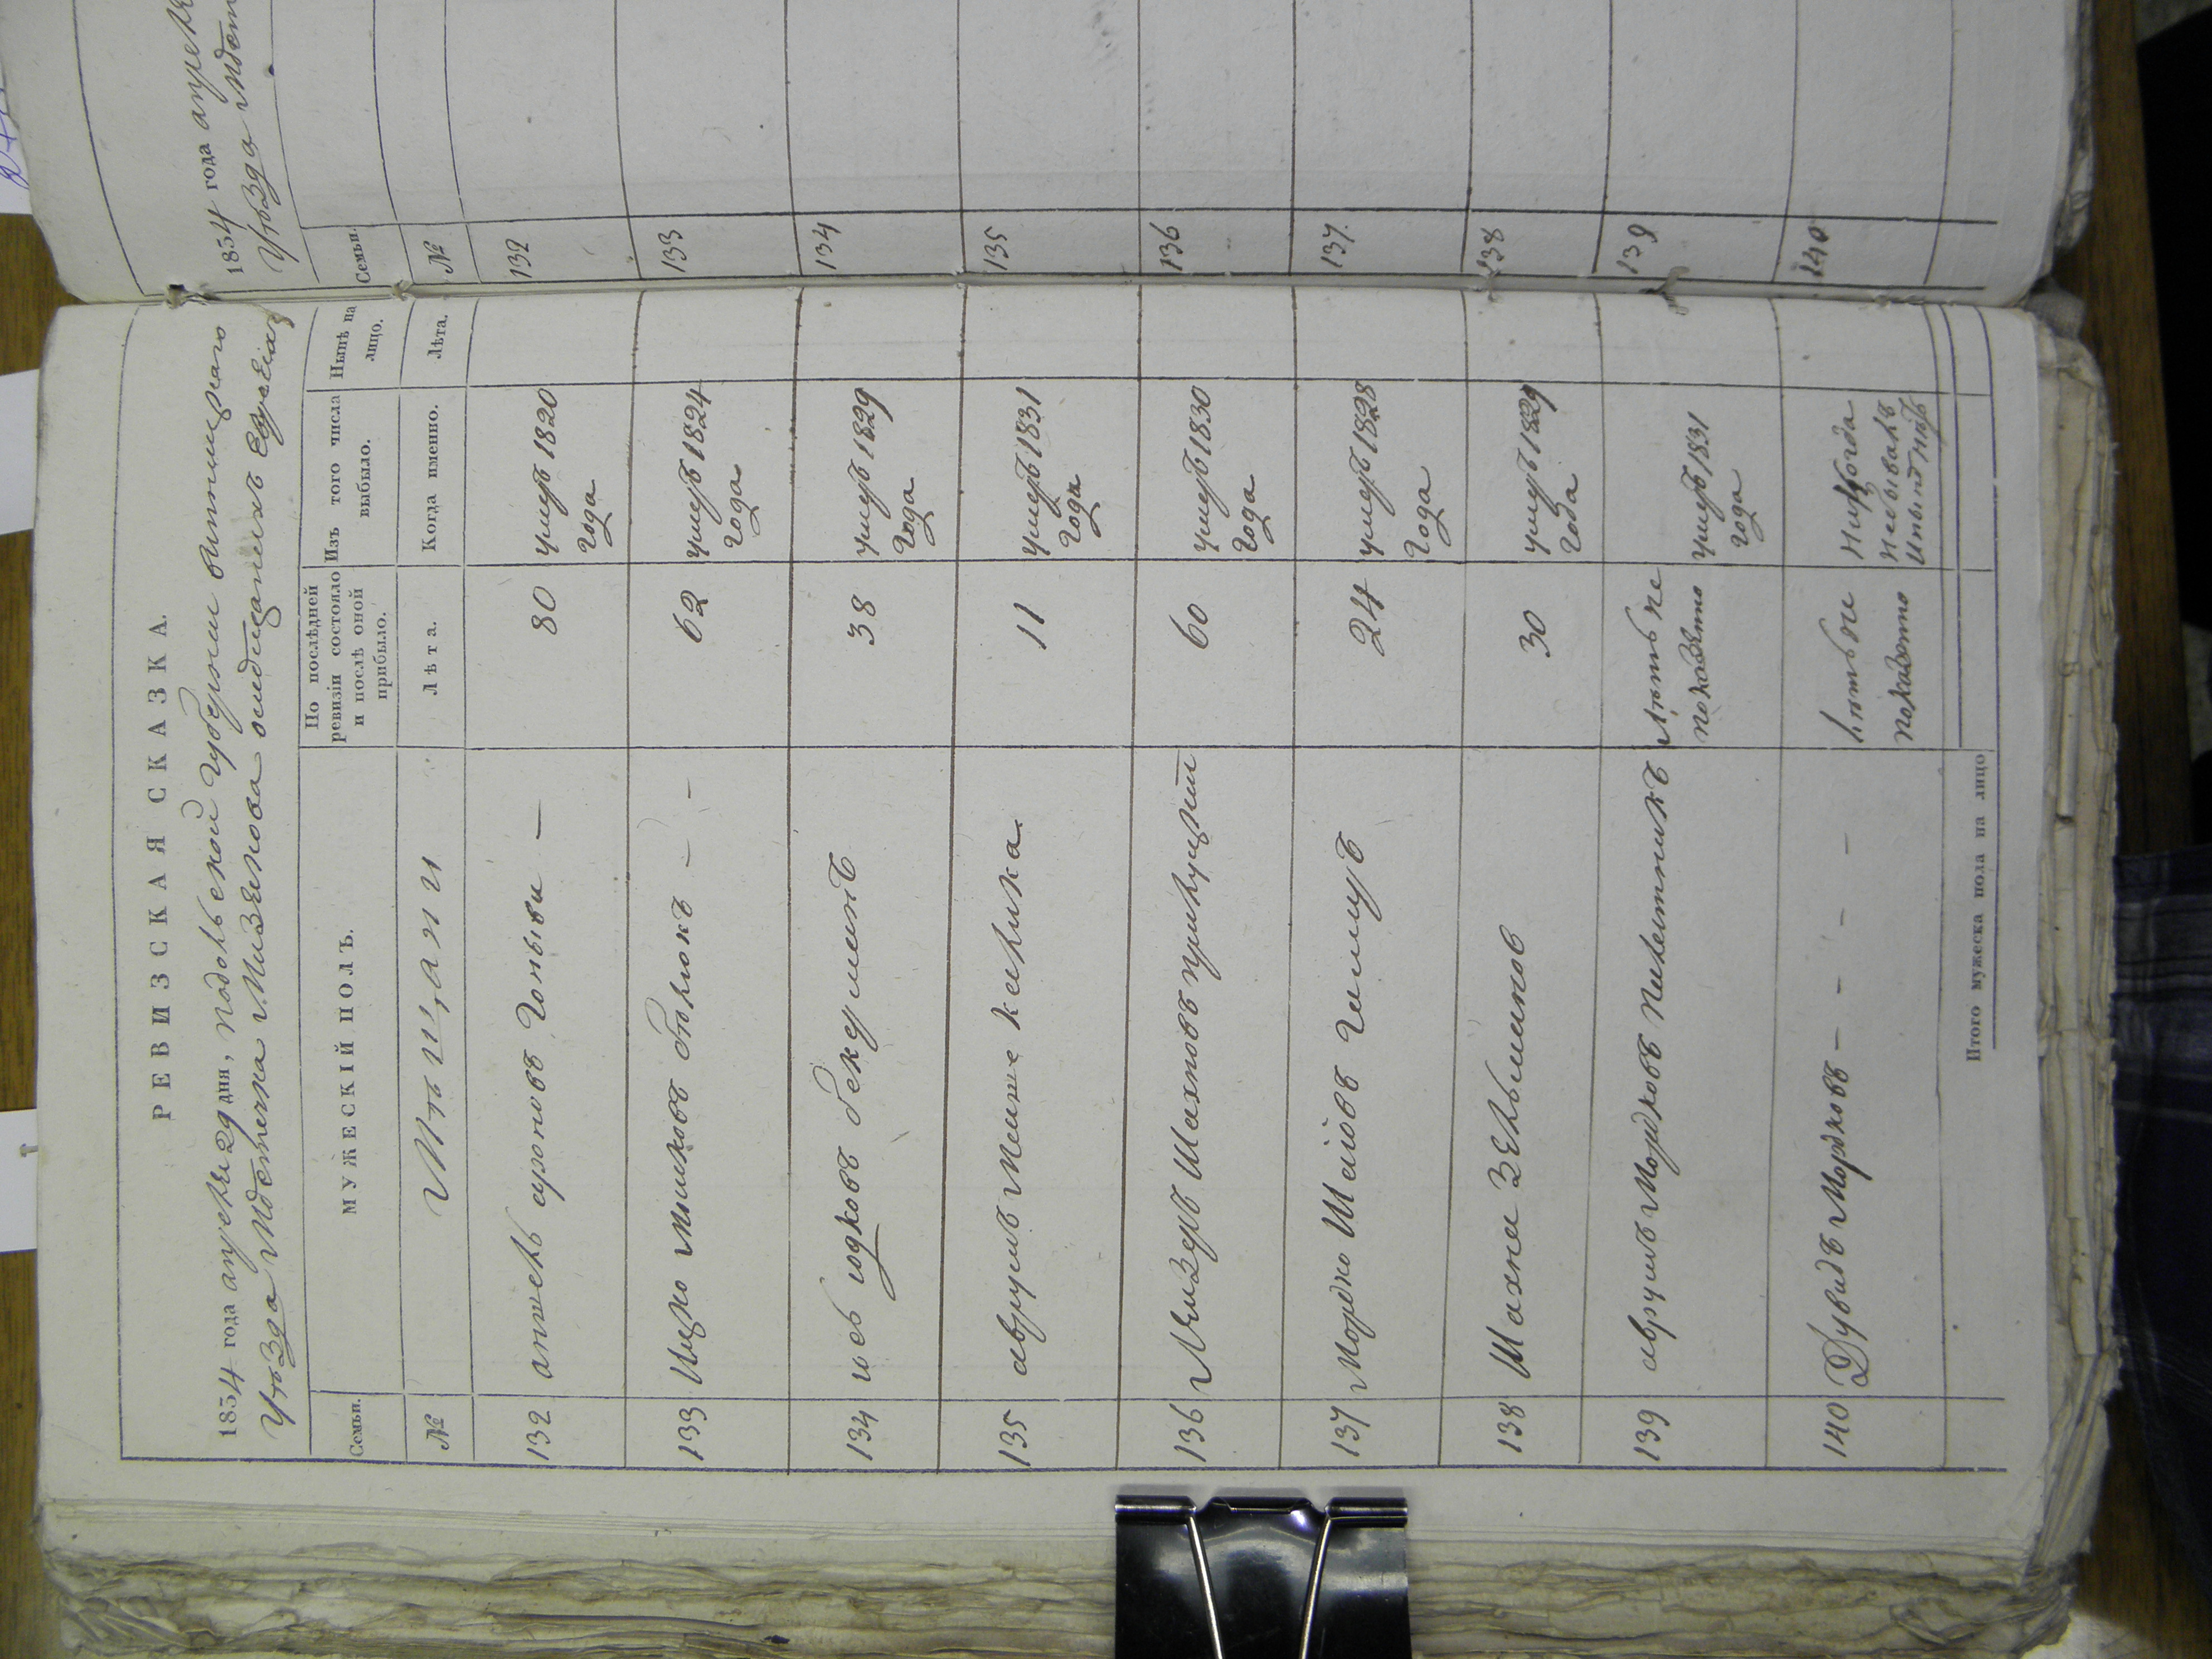 РЕВИЗСКАЯ СКАЗКА.
1834 года апреля 29 дня, Подольской губернии винницкаго
Уѣзда местечка Мизякова о мещанахъ Евреяхъ
Семьи.
МУЖЕСКІЙ ПОЛЪ.
По послѣдней ревизіи состояло и послѣ оной прибыло.
Изъ того числа выбыло.
Нынѣ на лицо.
№
Мѣщани
Лѣта.
Когда именно.
Лѣта.
132 аншель ароновъ 80 умеръ 1820
года
133 Ицко 62 умеръ 1824
года
134 юдковъ 38 умеръ 1829
года
135 аврумъ 11 умеръ 1831
года
136 Лейзеръ Шахновъ 60 умеръ 1830
года
137 Мордко 24 умеръ 1828
года
138 Шахна Зельмановъ 30 умеръ 1829
года
139 аврумъ Мордковъ лѣтъ не
показано умеръ 1831
года
140 Дувидъ Мордковъ - - - - лѣтъ не
показано никогда
небывалъ
и нынѣ нѣтъ
Итого мужеска пола на лицо
1834 года апреля
Уѣзда мест
Семьи.
№
132
133
134
135
136
137.
138
139
140